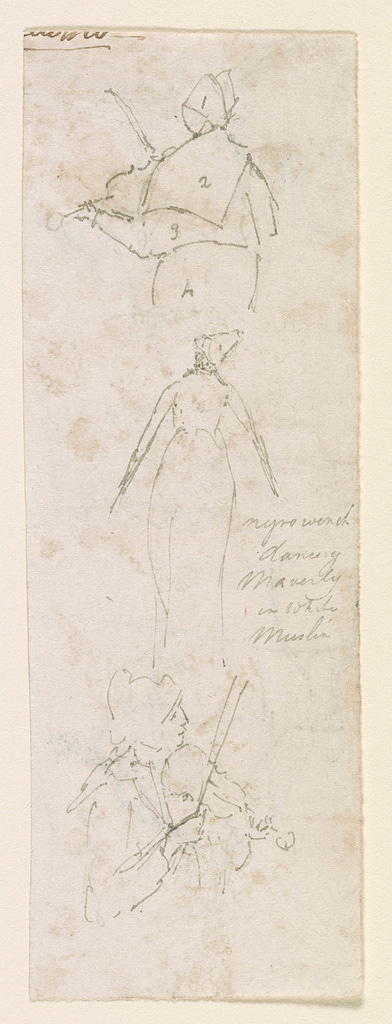 1
2
3
4
negro wench
dancing
in white
Muslin